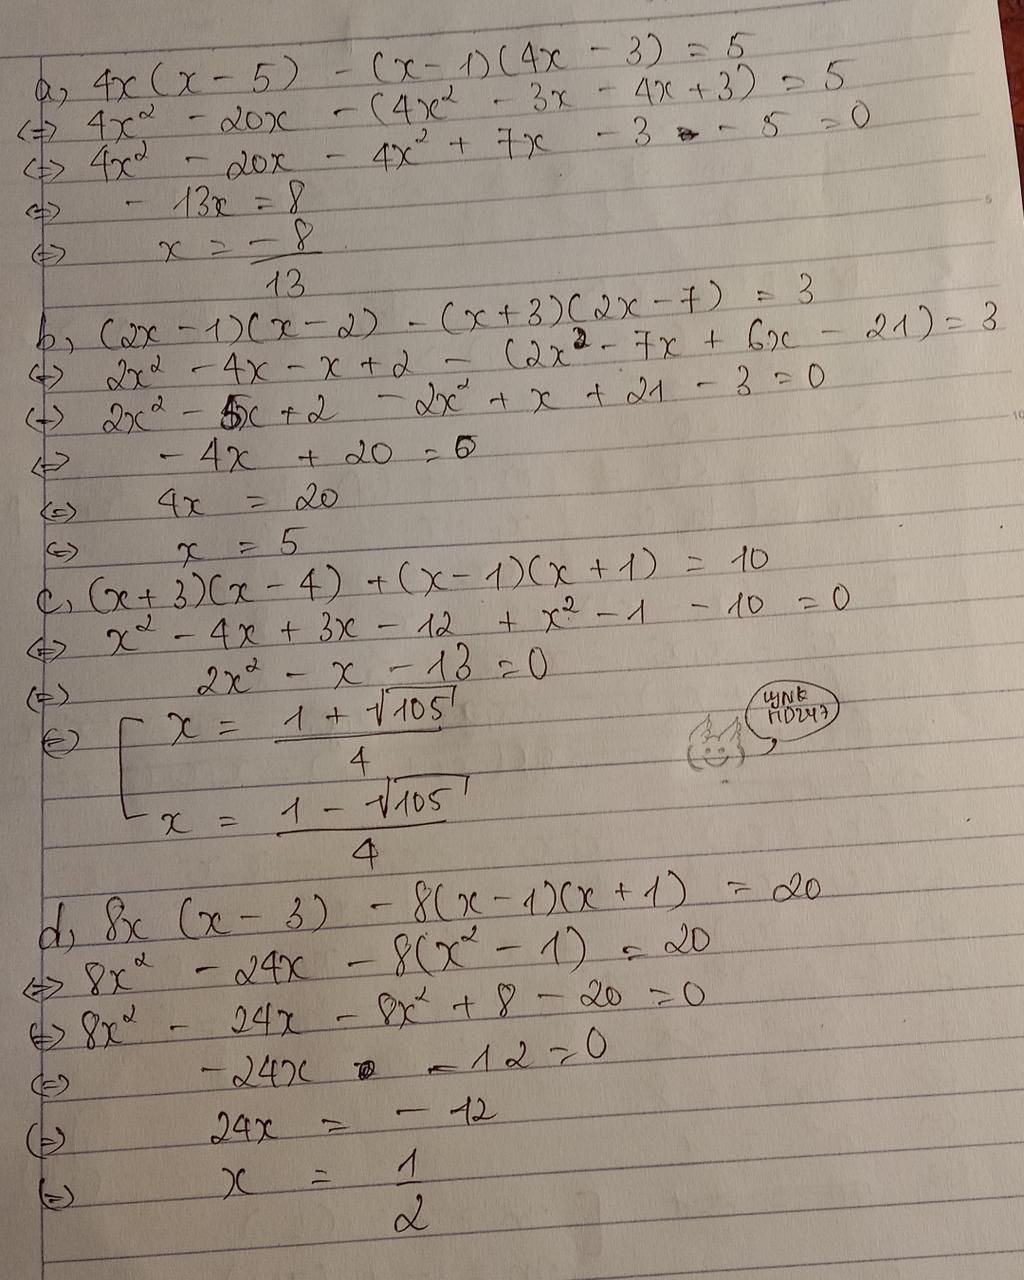 a, 4x(x - 5) - (x - 1)(4x - 3) = 5
<=> 4x² - 20x - (4x² - 3x - 4x + 3) = 5
<=> 4x² - 20x - 4x² + 7x - 3 - 5 = 0
<=> - 13x = 8
<=> x = -8/13
b, (2x - 1)(x - 2) - (x + 3)(2x - 7) = 3
<=> 2x² - 4x - x + 2 - (2x² - 7x + 6x - 21) = 3
<=> 2x² - 5x + 2 - 2x² + x + 21 - 3 = 0
<=> - 4x + 20 = 0
<=> 4x = 20
<=> x = 5
c, (x + 3)(x - 4) + (x - 1)(x + 1) = 10
<=> x² - 4x + 3x - 12 + x² - 1 - 10 = 0
<=> 2x² - x - 13 = 0
<=> [ x = (1 + √105)/4
x = (1 - √105)/4
LYNK
MD247
d, 8x (x - 3) - 8(x - 1)(x + 1) = 20
<=> 8x² - 24x - 8(x² - 1) = 20
<=> 8x² - 24x - 8x² + 8 - 20 = 0
<=> - 24x - 12 = 0
<=> 24x = - 12
<=> x = 1/2